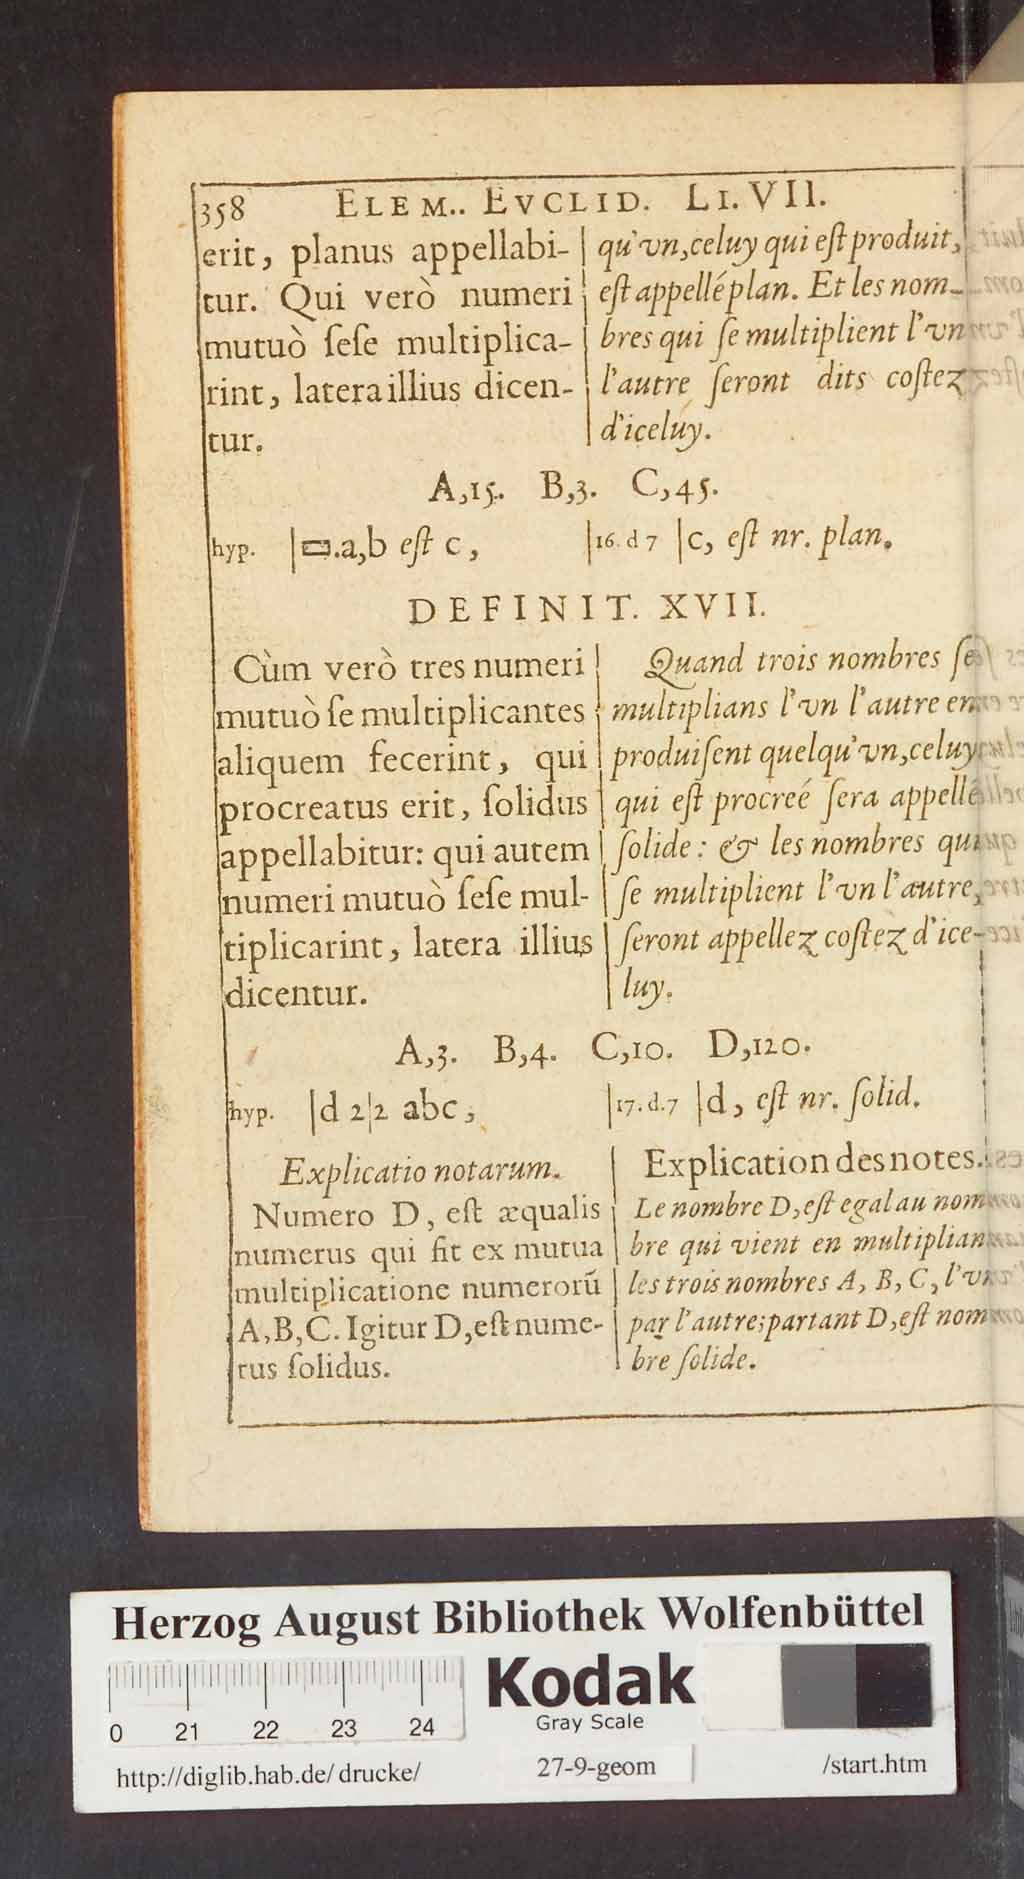 358 ELEM.. EVCLID. LI. VII.
erit, planus appellabi-
tur. Qui verò numeri
mutuò ſeſe multiplica-
rint, latera illius dicen-
tur.
qu'vn, celuy qui eſt produit,
eſt appellé plan. Et les nom-
bres qui ſe multiplient l'vn
l'autre ſeront dits coſtez
d'iceluy.
A,15. B,3. C,45.
hyp. |▭.a,b eſt c, |16. d 7 |c, eſt nr. plan.
DEFINIT. XVII.
Cùm verò tres numeri
mutuò ſe multiplicantes
aliquem fecerint, qui
procreatus erit, ſolidus
appellabitur: qui autem
numeri mutuò ſeſe mul-
tiplicarint, latera illius
dicentur.
Quand trois nombres ſe
multiplians l'vn l'autre en
produiſent quelqu'vn, celuy
qui eſt procreé ſera appellé
ſolide: & les nombres qui
ſe multiplient l'vn l'autre,
ſeront appellez coſtez d'ice-
luy.
A,3. B,4. C,10. D,120.
hyp. |d 2|2 abc, |17. d.7 |d, eſt nr. ſolid.
Explicatio notarum.
Numero D, eſt æqualis
numerus qui fit ex mutua
multiplicatione numerorū
A,B,C. Igitur D, eſt nume-
rus ſolidus.
Explication des notes.
Le nombre D, eſt egal au nom
bre qui vient en multiplian
les trois nombres A, B, C, l'vn
par l'autre; partant D, eſt nom
bre ſolide.
Herzog August Bibliothek Wolfenbüttel
0 21 22 23 24
Kodak
Gray Scale
http://diglib.hab.de/drucke/ 27-9-geom /start.htm